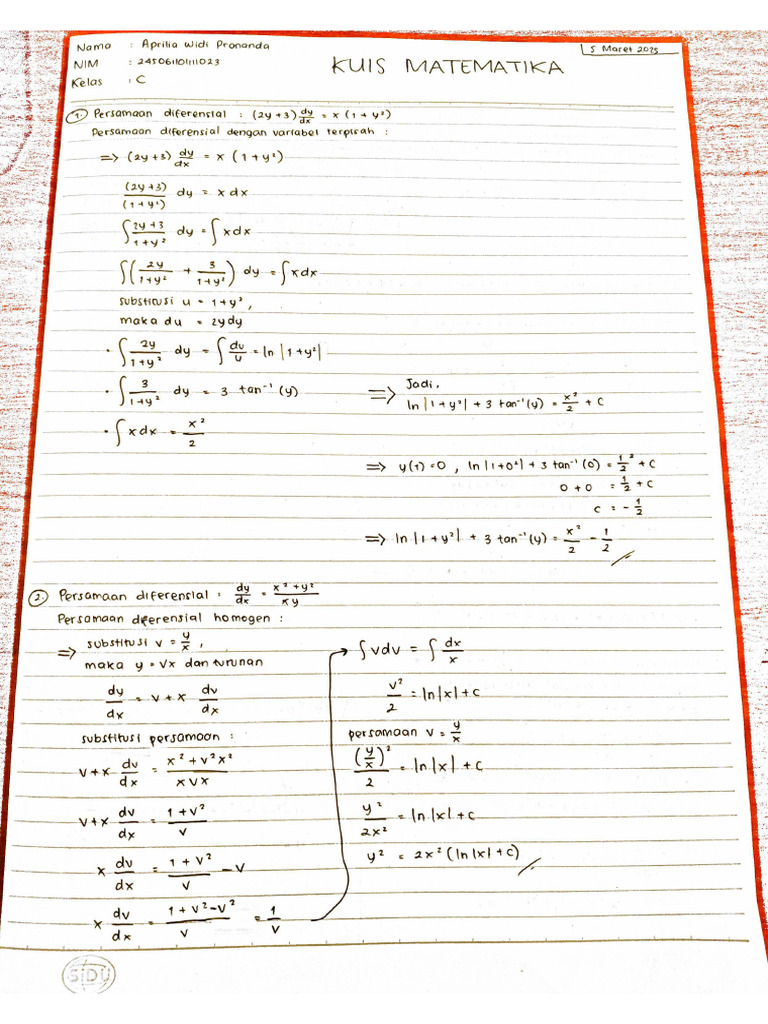 Nama : Aprilia Widi Pronanda
NIM : 245061101111023
Kelas : C
5 Maret 2025
KUIS MATEMATIKA
1. Persamaan diferensial : (2y+3) dy/dx = x (1 + y²)
Persamaan diferensial dengan variabel terpisah :
⇒ (2y+3) dy/dx = x (1+y²)
(2y+3)/(1+y²) dy = x dx
∫ 2y+3/1+y² dy = ∫ x dx
∫ (2y/1+y² + 3/1+y²) dy = ∫ x dx
substitusi u = 1+y²,
maka du = 2y dy
• ∫ 2y/1+y² dy = ∫ du/u = ln |1+y²|
• ∫ 3/1+y² dy = 3 tan⁻¹ (y)
• ∫ x dx = x²/2
⇒ Jadi,
ln |1+y²| + 3 tan⁻¹(y) = x²/2 + C
⇒ y(1) = 0 , ln |1+0²| + 3 tan⁻¹ (0) = 1²/2 + C
0 + 0 = 1/2 + C
C = - 1/2
⇒ ln |1+y²| + 3 tan⁻¹ (y) = x²/2 - 1/2 //
2. Persamaan diferensial : dy/dx = x²+y²/xy
Persamaan diferensial homogen :
⇒ substitusi v = y/x ,
maka y = vx dan turunan
dy/dx = v + x dv/dx
substitusi persamaan :
v+x dv/dx = x²+v²x²/xvx
v+x dv/dx = 1+v²/v
x dv/dx = 1+v²/v - v
x dv/dx = 1+v²-v²/v = 1/v
→ ∫ vdv = ∫ dx/x
v²/2 = ln|x| + C
persamaan v = y/x
(y/x)²/2 = ln|x| + C
y²/2x² = ln|x| + C
y² = 2x² (ln|x| + C) //
SiDU